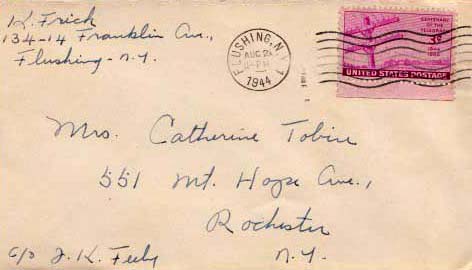 K. Frick
134-14 Franklin Ave.,
Flushing - N.Y.
FLUSHING, N.Y.
AUG 2
PM
1944
CENTENARY
OF THE
TELEGRAPH
3¢
1844
1944
UNITED STATES POSTAGE
Mrs. Catherine Tobin
551 Mt. Hope Ave.,
Rochester
N.Y.
c/o J. K. Feely